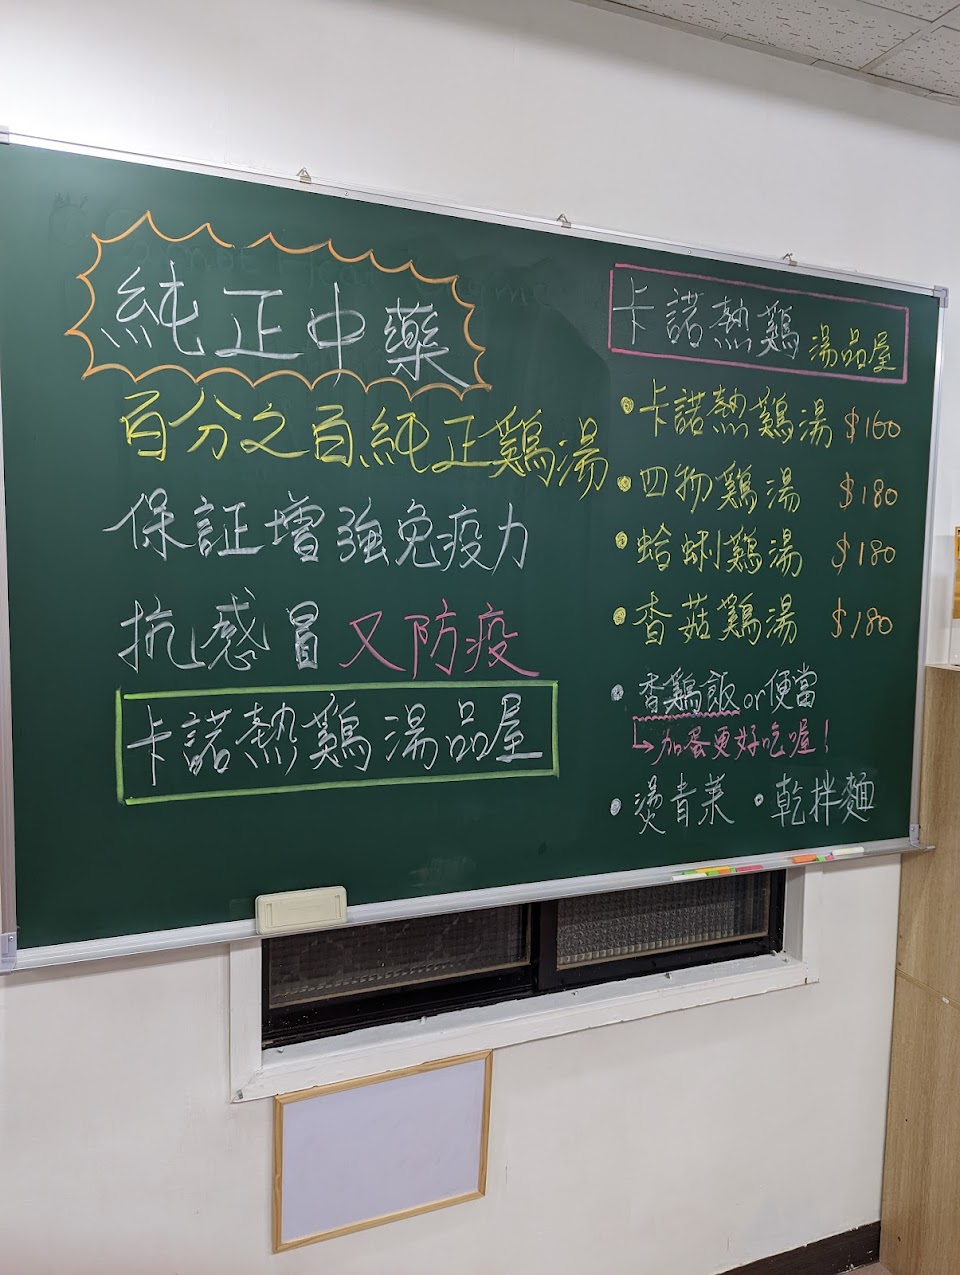 純正中藥
百分之百純正鷄湯
保証增強免疫力
抗感冒又防疫
卡諾熱鷄湯品屋
卡諾熱鷄湯品屋
卡諾熱鷄湯 $160
四物鷄湯 $180
蛤蜊鷄湯 $180
香菇鷄湯 $180
香鷄飯or便當
加蛋更好吃喔!
燙青菜 • 乾拌麵